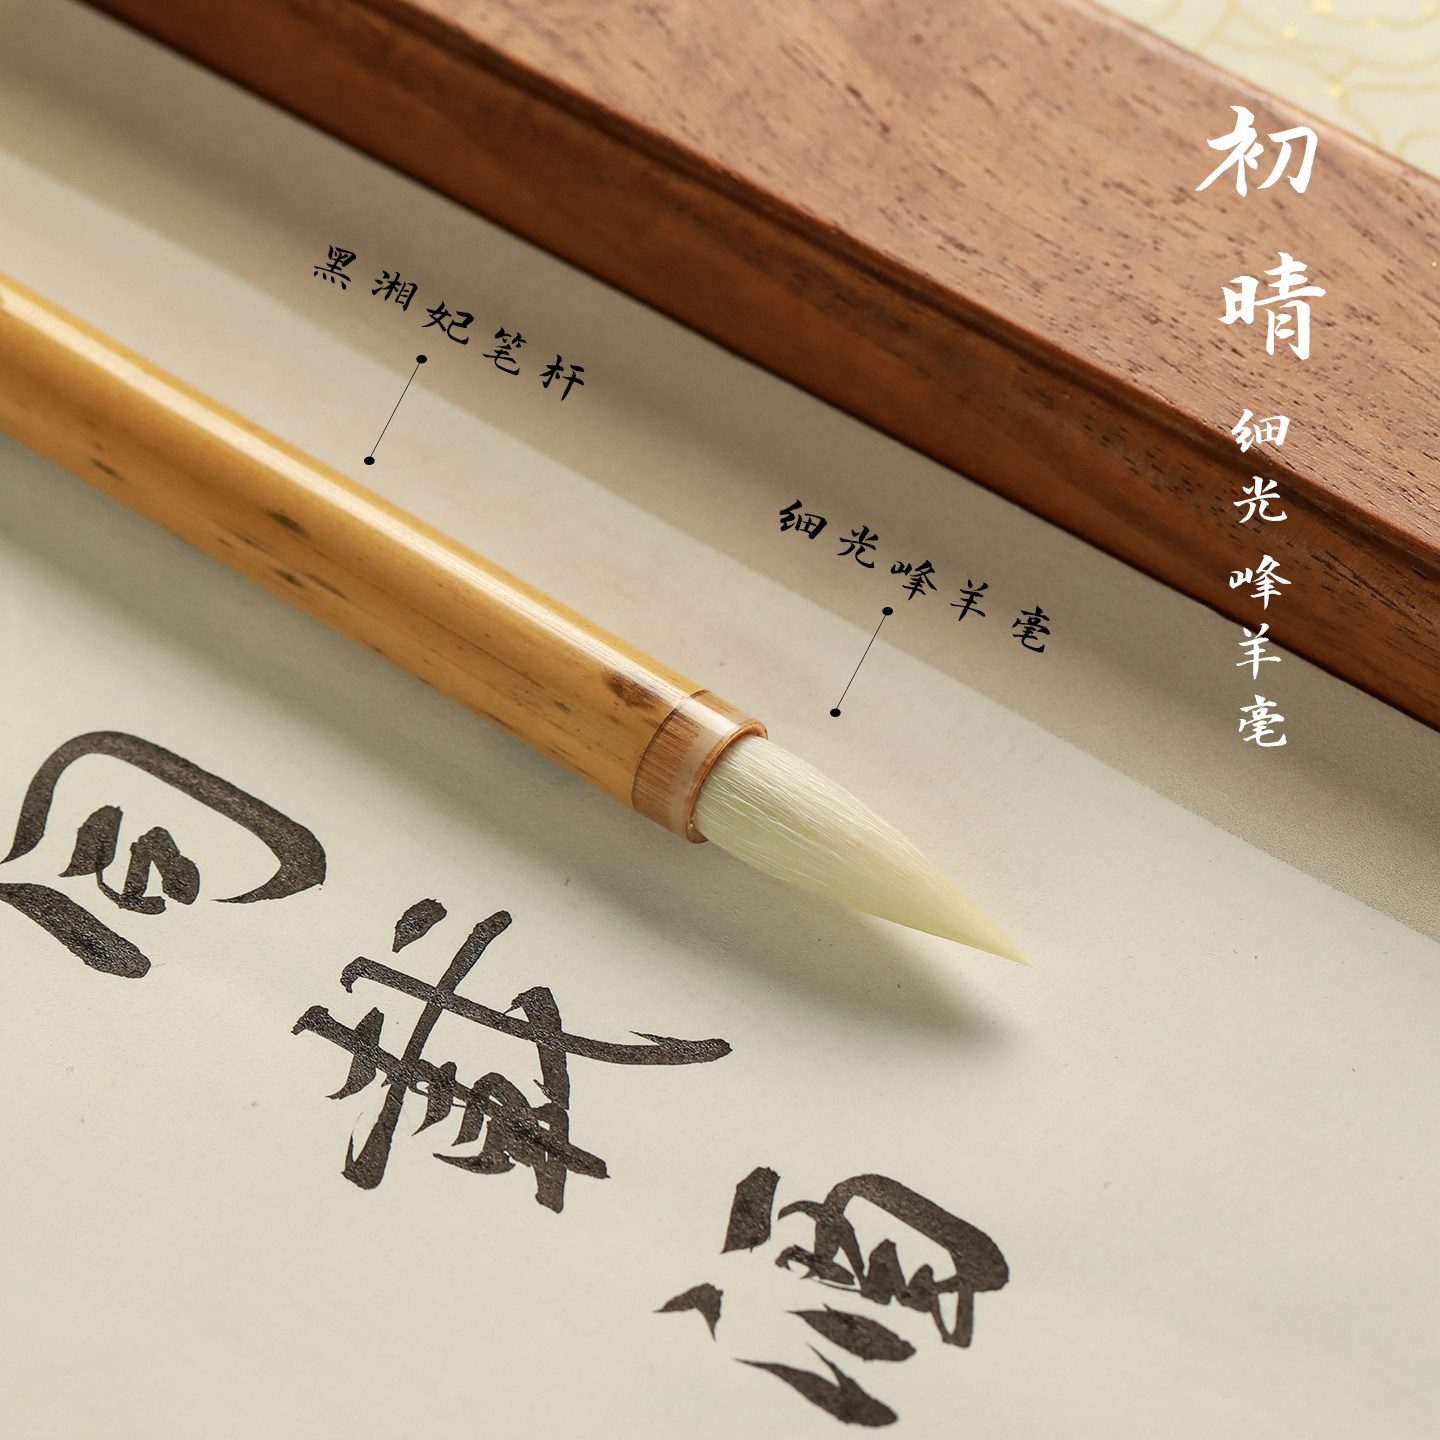 初晴
细光峰羊毫
黑湘妃笔杆
细光峰羊毫
同载酒